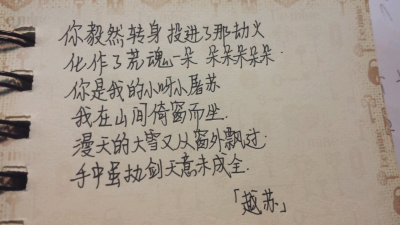 你毅然转身投进了那劫火
化作了荒魂一朵 朵朵朵朵朵.
你是我的小呀小屠苏
我在山间倚窗而坐.
漫天的大雪又从窗外飘过.
手中虽执剑天意未成全.
「越苏」